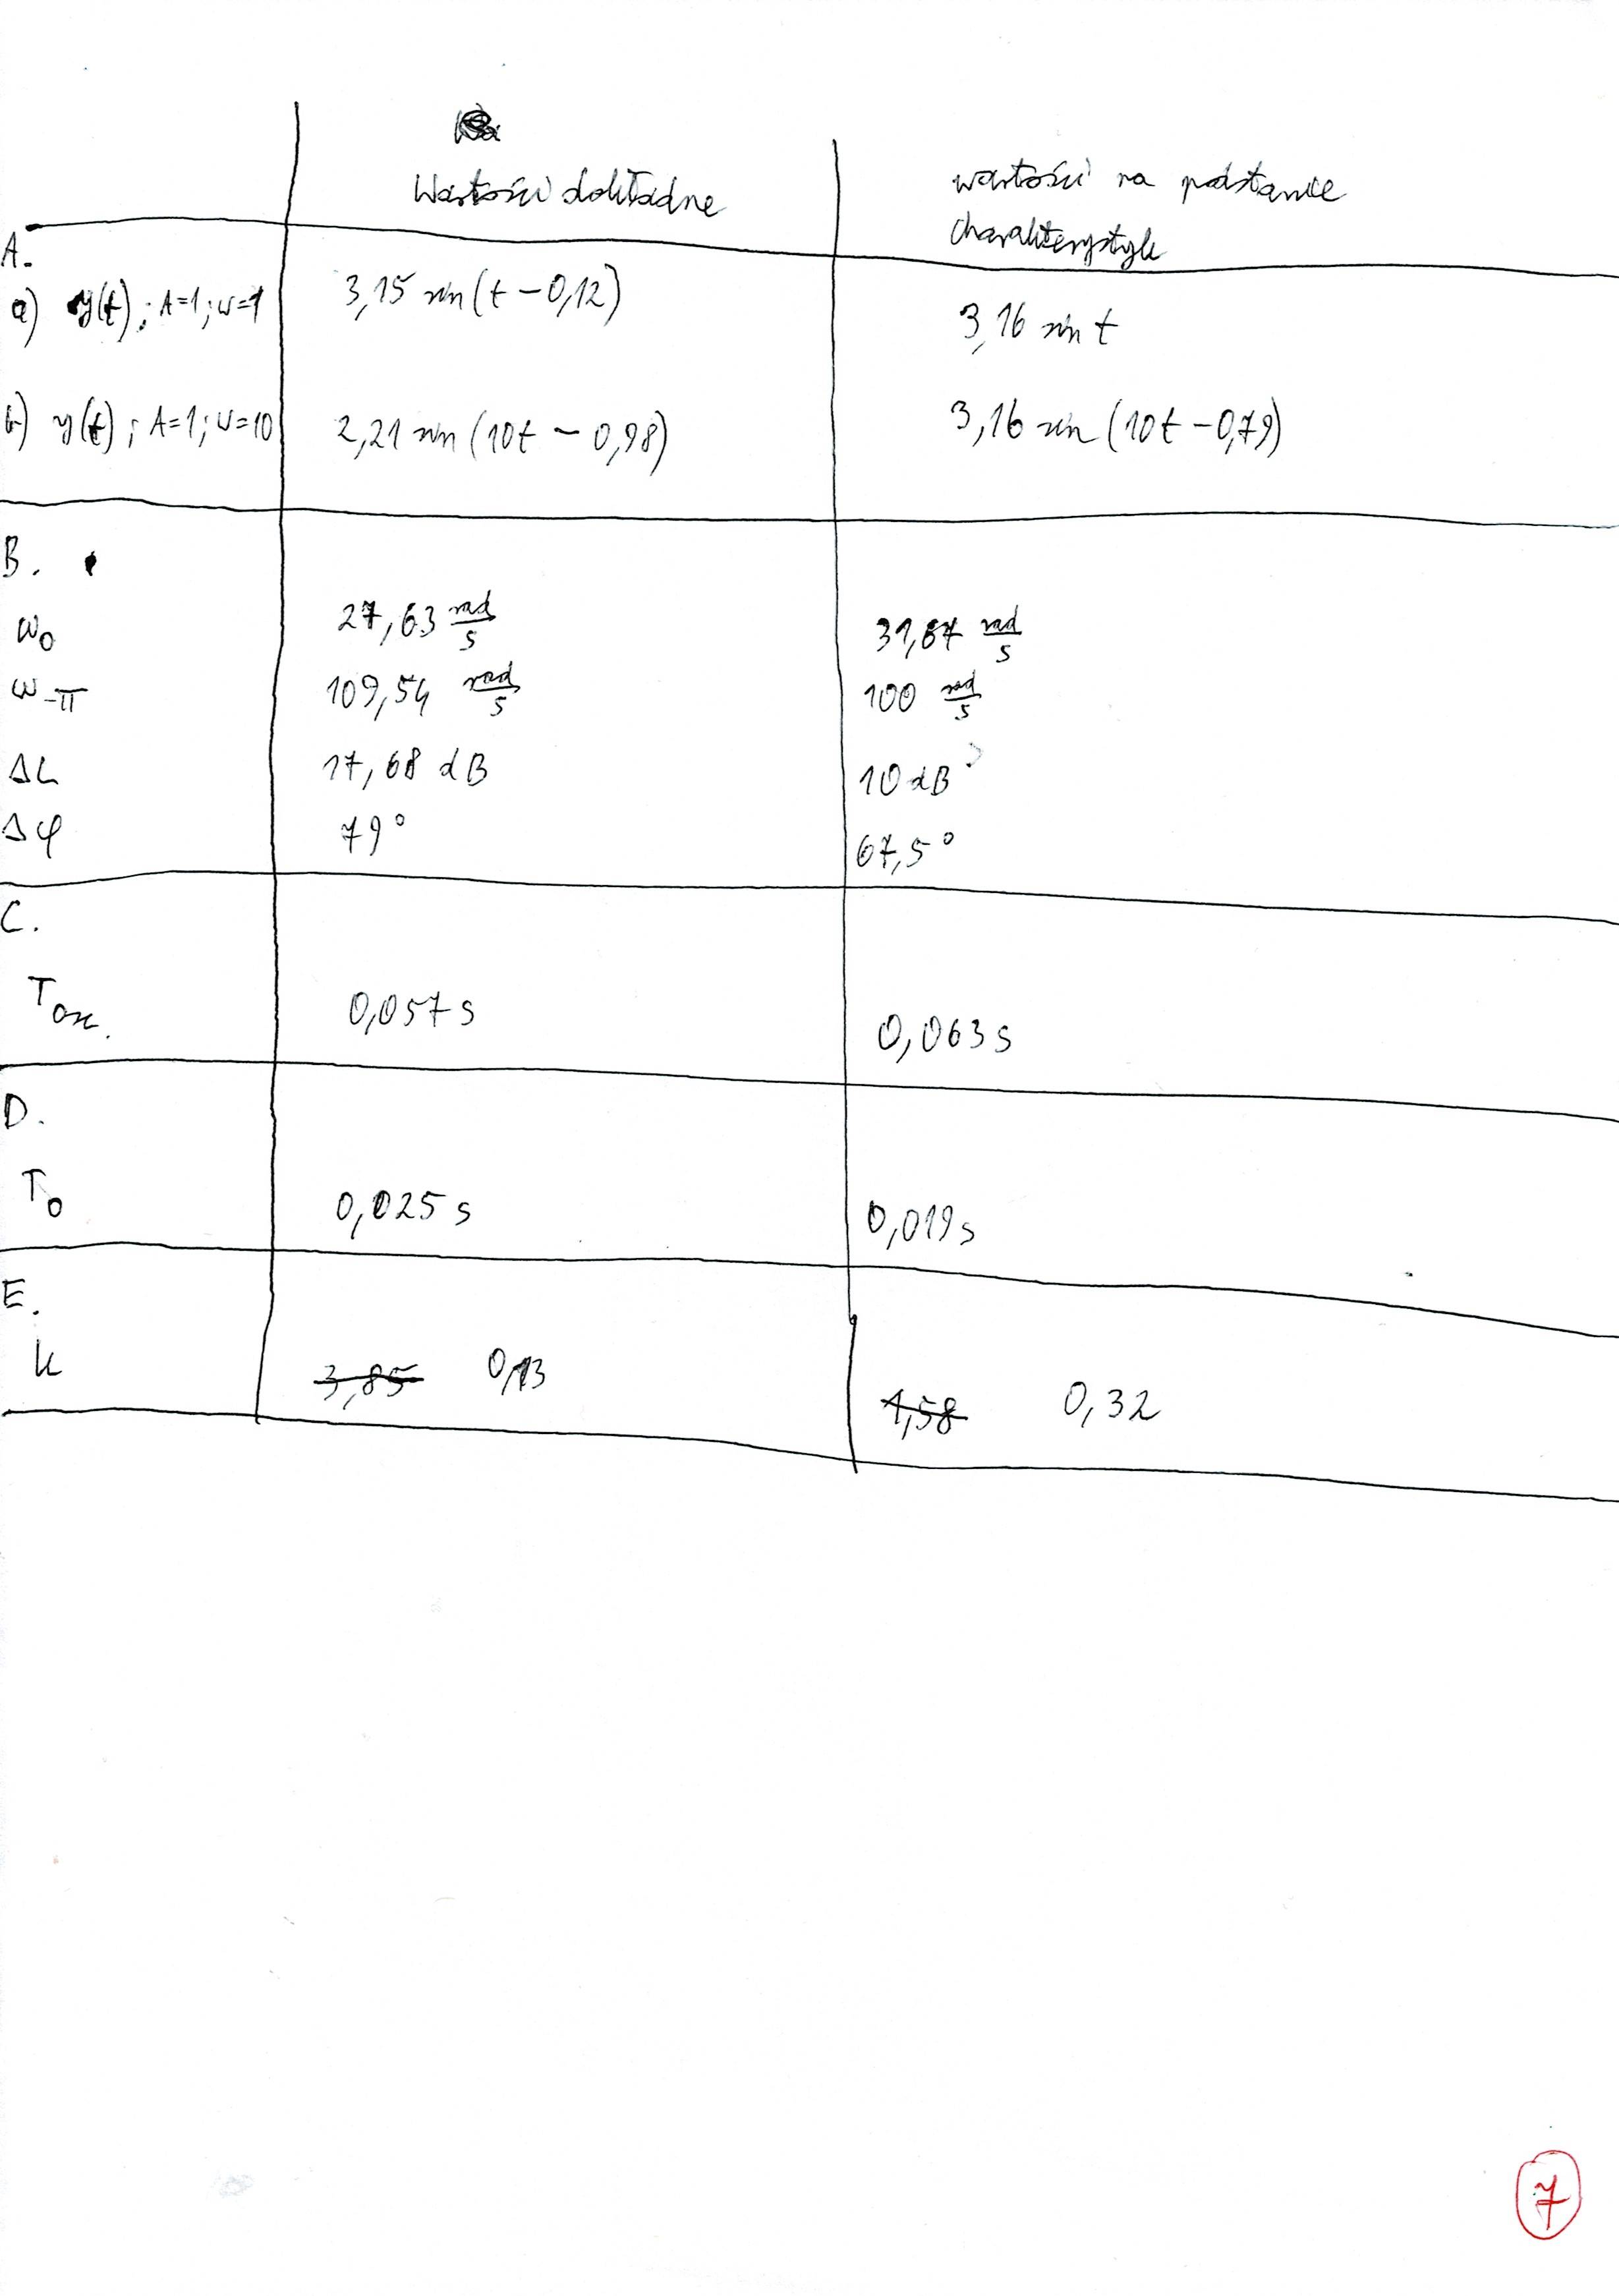 Wartości dokładne
wartości na podstawie
charakterystyk
A.
a) y(t); A=1; ω=1
3,15 sin(t - 0,12)
3,16 sin t
b) y(t); A=1; ω=10
2,21 sin(10t - 0,98)
3,16 sin(10t - 0,79)
B.
ω₀
27,63 rad/s
31,67 rad/s
ω-π
109,54 rad/s
100 rad/s
ΔL
17,68 dB
10 dB
Δφ
79°
67,5°
C.
0,057 s
0,063 s
D.
T₀
0,025 s
0,019 s
E.
k
3,85 0,13
1,58 0,32
7